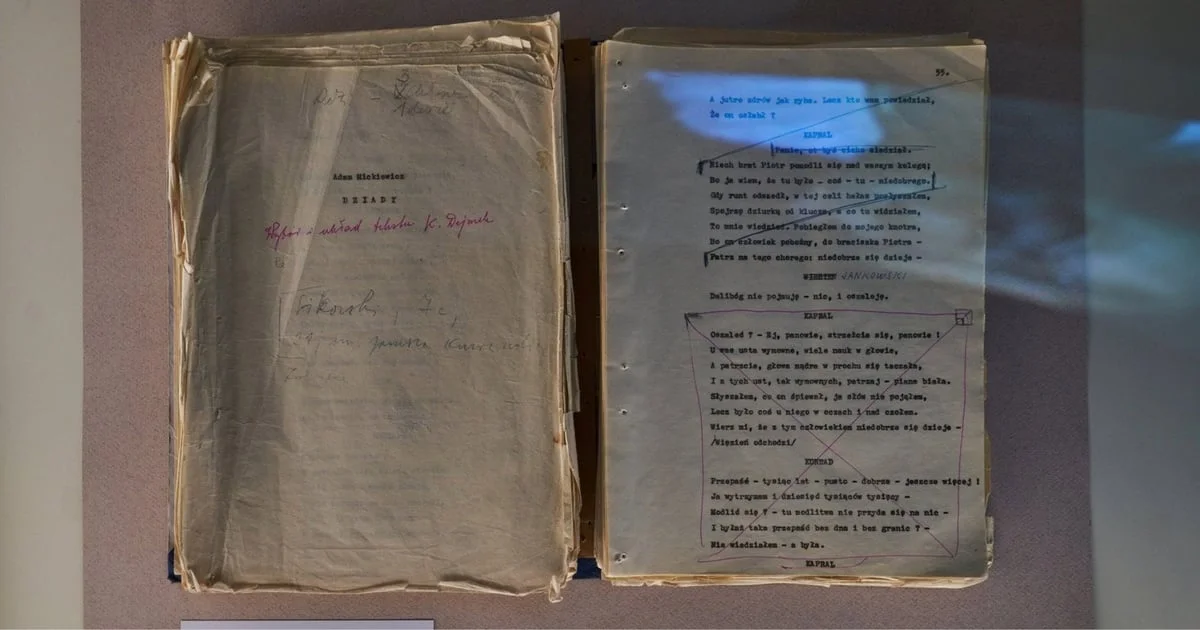 Adam Mickiewicz
DZIADY
Wybór i układ tekstu K. Dejmek
55.
A jutro zdrów jak ryba. Lecz kto wam powiedział,
Że on osłabł ?
KAPRAL
Panie, ot byś cicho siedział.
Niech brat Piotr pomodli się nad waszym kolegą;
Bo ja wiem, że tu było - coś - tu - niedobrego.
Gdy runt odszedł, w tej celi hałas posłyszałem,
Spojrzę dziurką od klucza, a co tu widziałem,
To mnie wiedzieć. Pobiegłem do mojego kmotra,
Bo on człowiek pobożny, do braciszka Piotra -
Patrz na tego chorego: niedobrze się dzieje -
WIĘZIEŃ JANKOWSKI
Dalibóg nie pojmuję - nic, i oszaleję.
KAPRAL
Oszaleć ? - Ej, panowie, strzeżcie się, panowie !
U was usta wymowne, wiele nauk w głowie,
A patrzcie, głowa mądra w prochu się taczała,
I z tych ust, tak wymownych, patrzaj - piana biała.
Słyszałem, co on śpiewał, ja słów nie pojąłem,
Lecz było coś u niego w oczach i nad czołem.
Wierz mi, że z tym człowiekiem niedobrze się dzieje -
/Więzień odchodzi/
KONRAD
Przepaść - tysiąc lat - pusto - dobrze - jeszcze więcej !
Ja wytrzymam i dziesięć tysiąców tysięcy -
Modlić się ? - tu modlitwa nie przyda się na nic -
I byłaż taka przepaść bez dna i bez granic ? -
Nie wiedziałem - a była.
KAPRAL